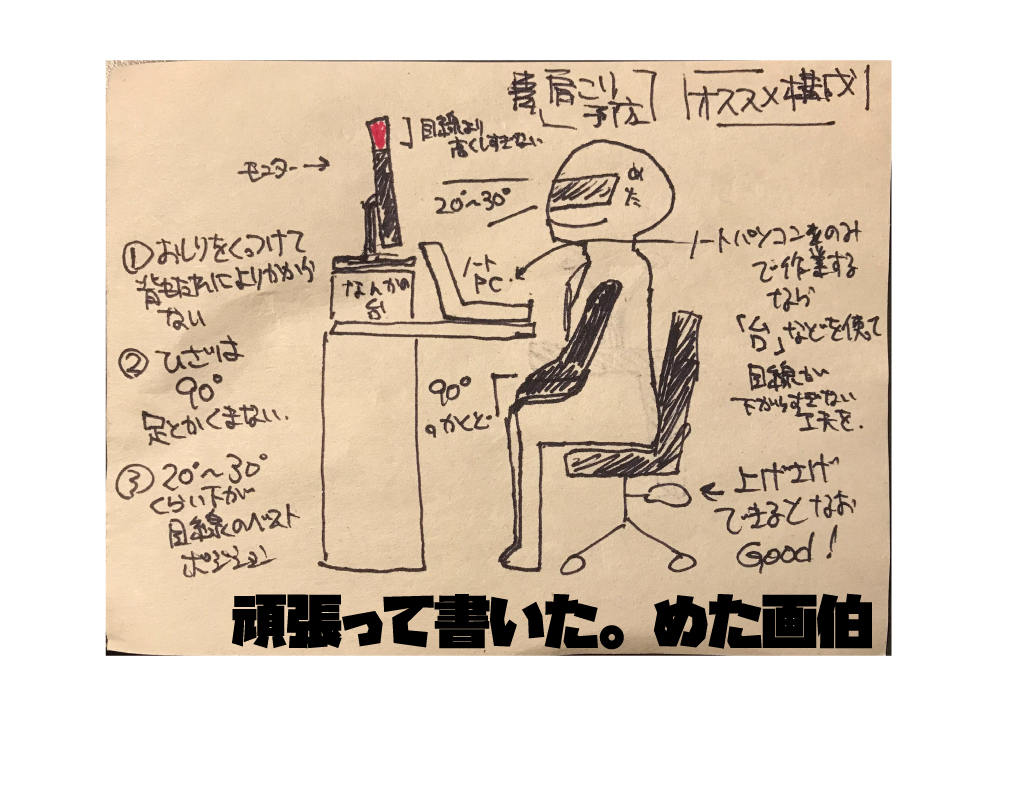 肩こり
予方
オススメ構成
目線より
高くしすぎない
モニター→
20°〜30°
め
た
①おしりをくっつけて
背もたれによりかから
ない
ノート
PC
なんかの
台
ノートパソコンをのみ
で作業する
なら
「台」などを使って
目線が
下がりすぎない
工夫を.
②ひざは
90°
足とかくまない.
90°
。かくど.
③20°〜30°
くらい下が
目線のベスト
ポジション
←上げ上げ
できるとなお
Good!
頑張って書いた。めた画伯